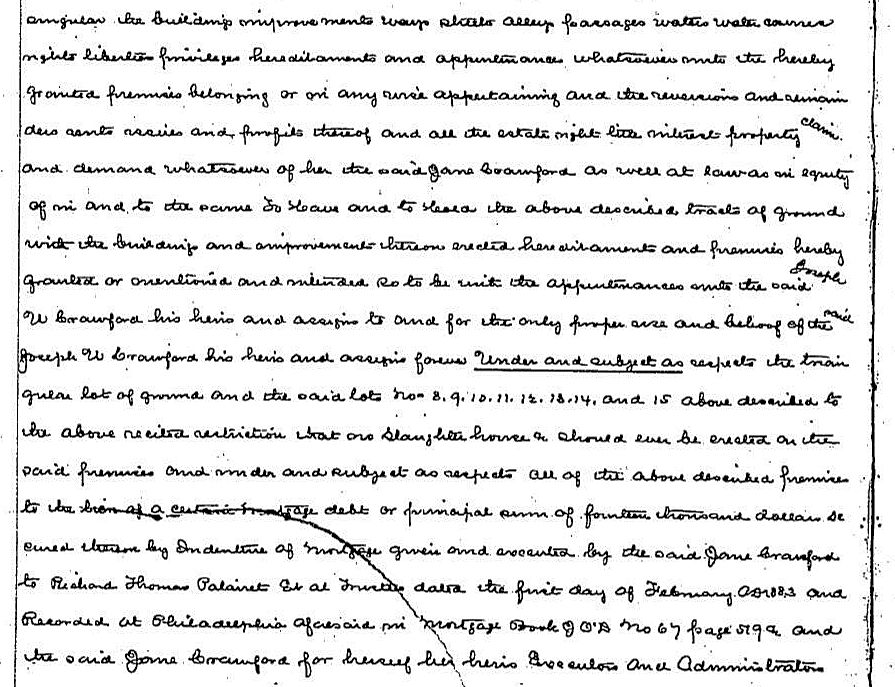 singular the buildings improvements ways streets alleys passages waters water courses
rights liberties privileges hereditaments and appurtenances whatsoever unto the hereby
granted premises belonging or in any wise appertaining and the reversions and remain
ders rents issues and profits thereof and all the estate right title interest property claim
and demand whatsoever of her the said Jane Crawford as well at law as in equity
of in and to the same To Have and to Hold the above described tracts of ground
with the buildings and improvements thereon erected hereditaments and premises hereby
granted or mentioned and intended so to be with the appurtenances unto the said Joseph
W Crawford his heirs and assigns to and for the only proper use and behoof of the said
Joseph W Crawford his heirs and assigns forever Under and subject as respects the trian
gular lot of ground and the said lots Nos 8. 9. 10. 11. 12. 13. 14. and 15 above described to
the above recited restriction that no Slaughter house &c should ever be erected on the
said premises and under and subject as respects all of the above described premises
to the lien of a certain mortgage debt or principal sum of fourteen thousand dollars se
cured thereon by Indenture of Mortgage given and executed by the said Jane Crawford
to Richard Thomas Palairet Et al Trustees dated the first day of February AD 1883 and
Recorded at Philadelphia aforesaid in Mortgage Book J O'D No 67 page 519 &c and
the said Jane Crawford for herself her heirs Executors and Administrators